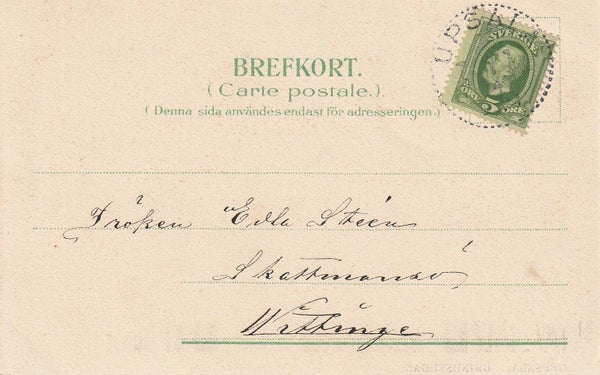 UPSALA
SVERIGE
ÖRE 5 ÖRE
BREFKORT.
(Carte postale.)
(Denna sida användes endast för adresseringen.)
Fröken Edla Steén
Skattmansö
Wittinge
UPSALA. GRINDSTUGAN